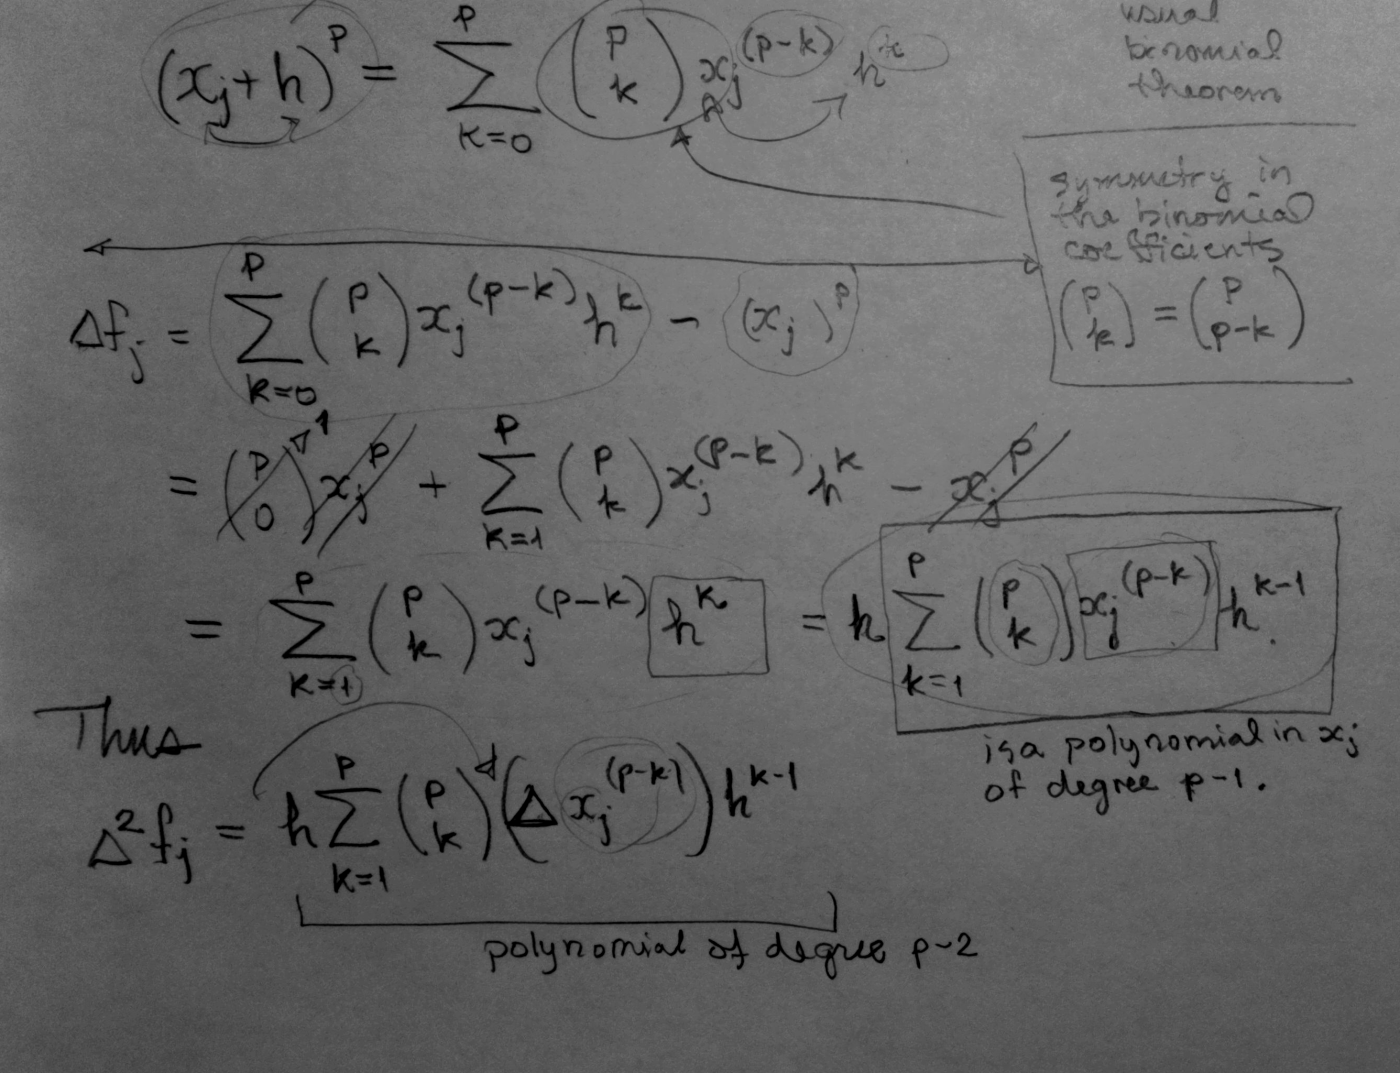 usual
binomial
theorem
(xⱼ+h)^p = ∑_{k=0}^{p} (p k) xⱼ^(p-k) h^k
symmetry in
the binomial
coefficients
(p k) = (p p-k)
Δfⱼ = ∑_{k=0}^{p} (p k) xⱼ^(p-k) h^k - (xⱼ)^p
= (p 0)^1 xⱼ^p + ∑_{k=1}^{p} (p k) xⱼ^(p-k) h^k - xⱼ^p
= ∑_{k=1}^{p} (p k) xⱼ^(p-k) h^k = h ∑_{k=1}^{p} (p k) xⱼ^(p-k) h^{k-1}.
is a polynomial in xⱼ
of degree p-1.
Thus
Δ²fⱼ = h ∑_{k=1}^{p} (p k) (Δ xⱼ^(p-k)) h^{k-1}
polynomial of degree p-2